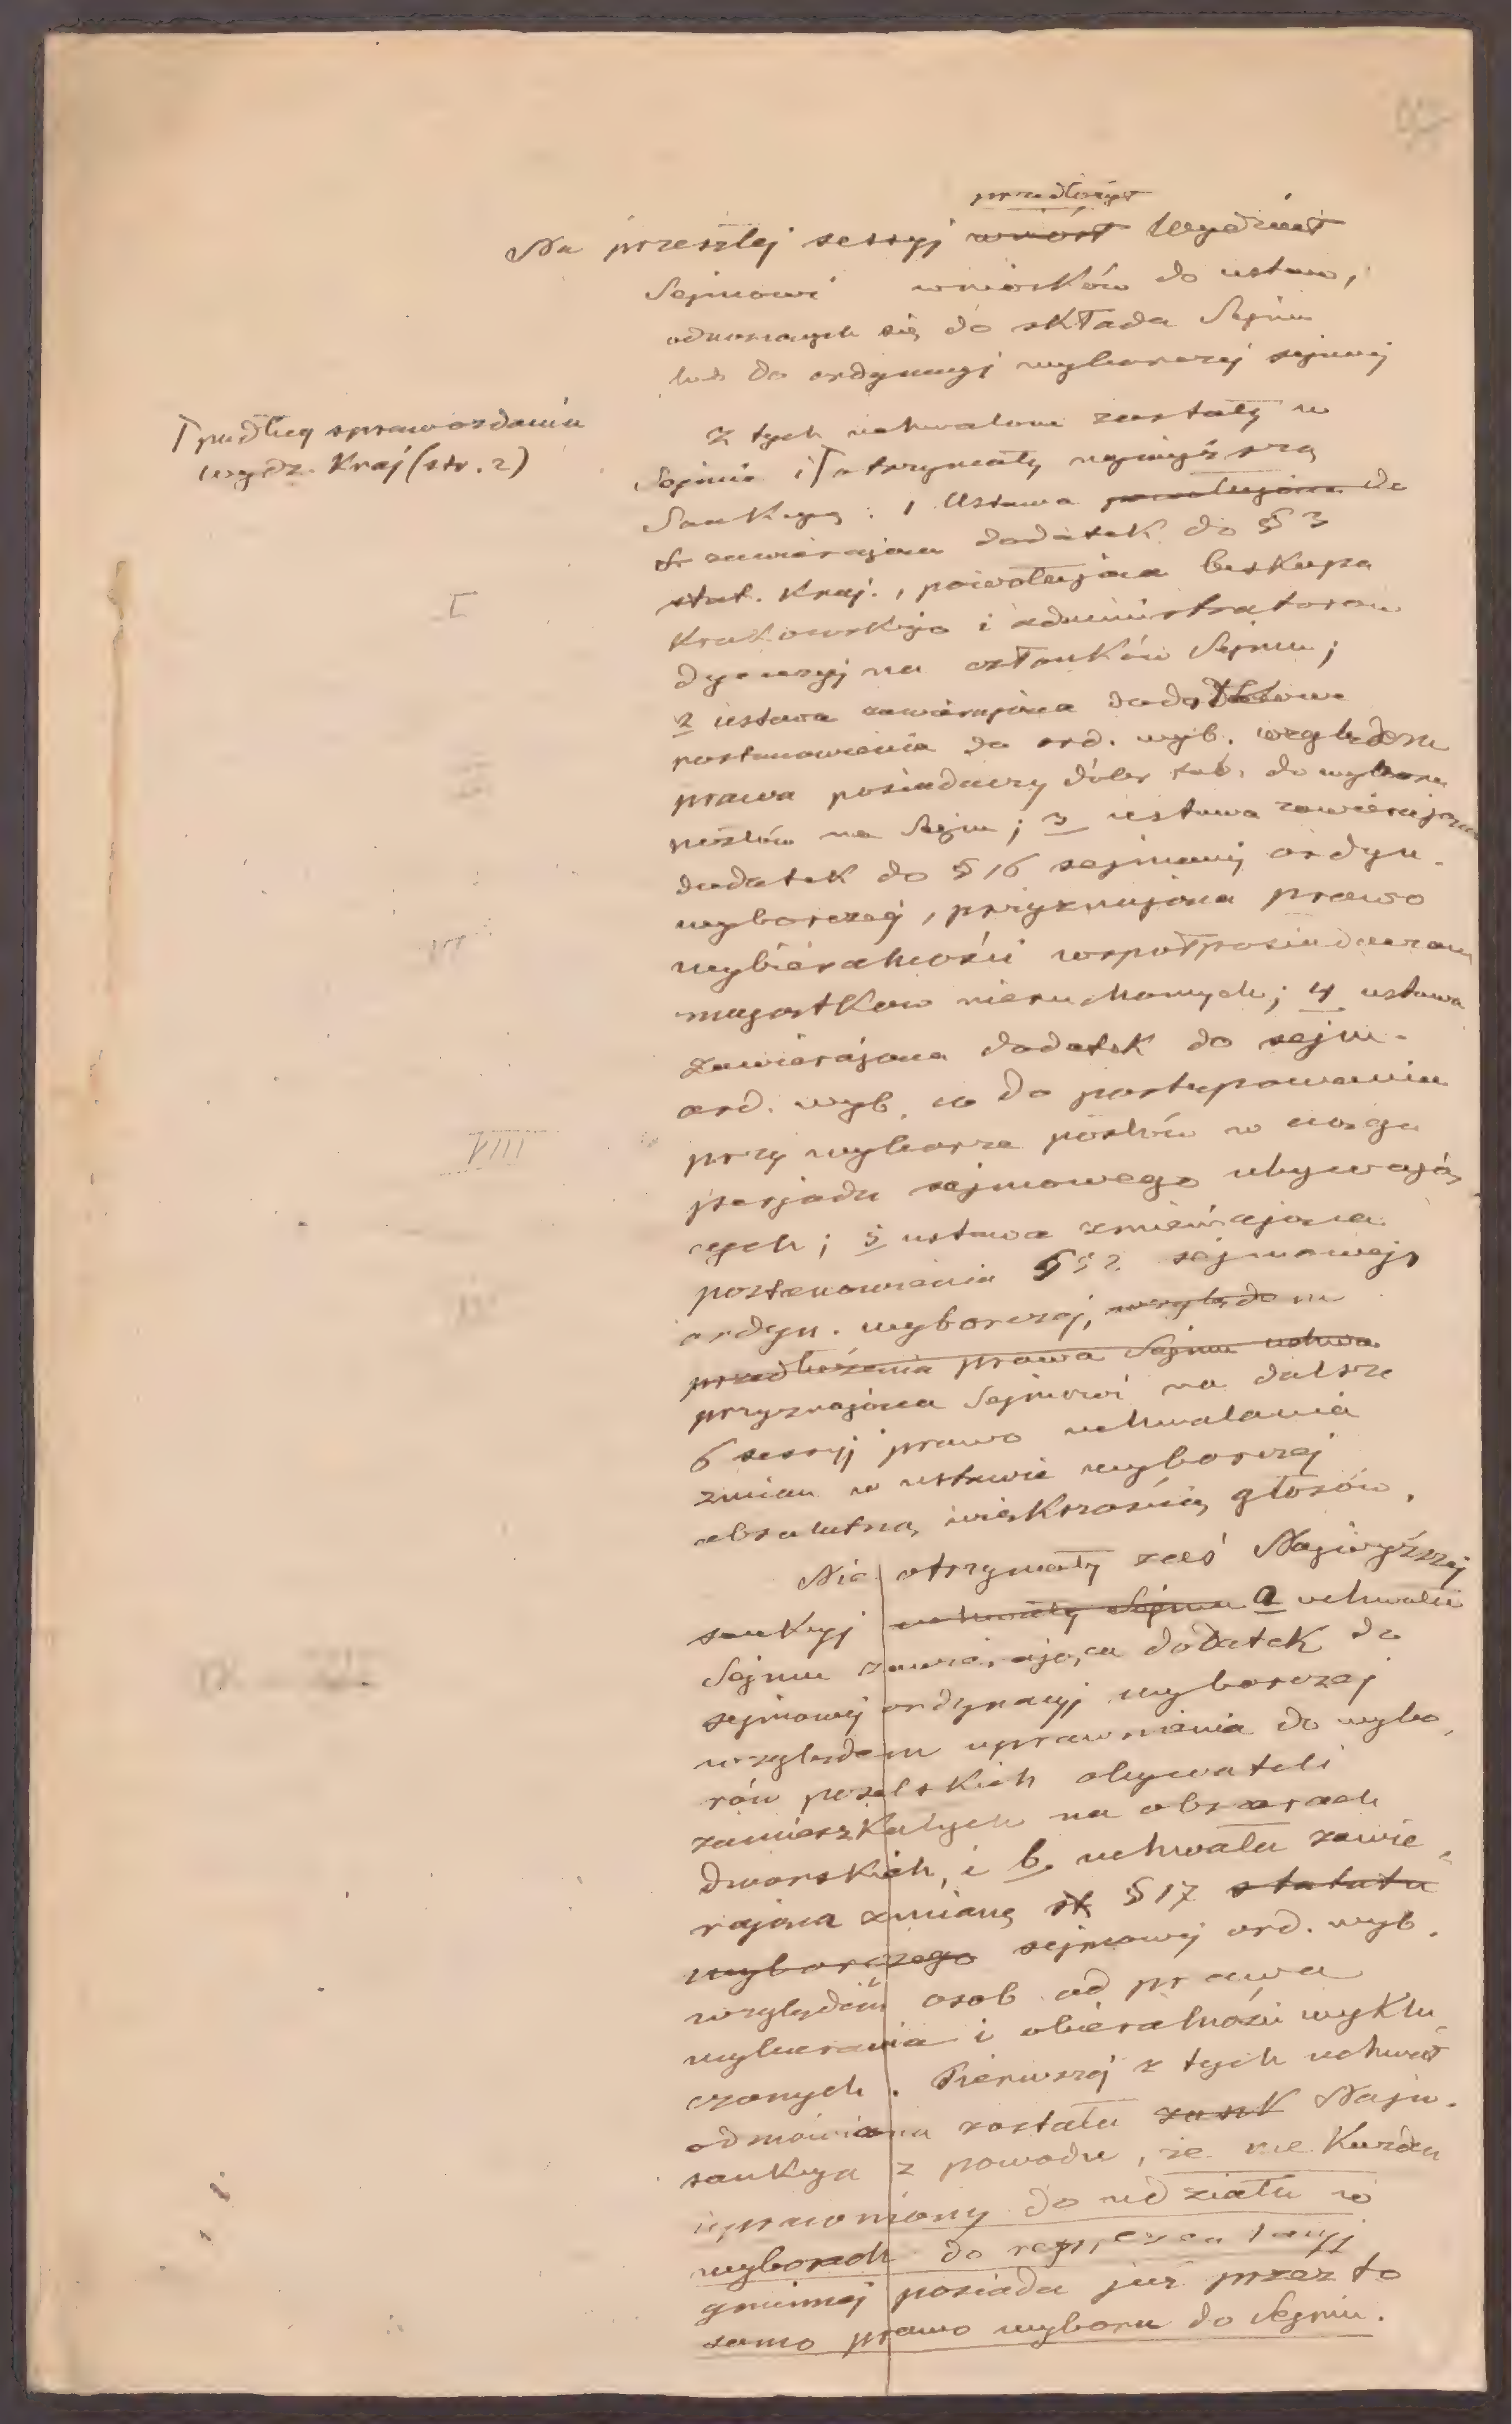 przedłożył
Na przeszłej sessyj wniósł Wydział
Sejmowi wniosków do ustaw,
odnoszących się do składu Sejmu
lub do ordynacyj wyborczej sejmowej
Z tych uchwalone zostały w
⌈ podług sprawozdania
wydz. Kraj (str. 2)
Sejmie i ⌈ otrzymały najwyższą
Sankcyą : 1 Ustawa powołująca do
zawierająca dodatek do § 3
I
stat. Kraj., powołująca biskupa
Krakowskiego i administratorów
dyecezyj na członków Sejmu ;
2 ustawa zawierająca dodatkowe
postanowienia do ord. wyb. względem
III
prawa posiadaczy dóbr tab. do wyboru
posłów na Sejm ; 3 ustawa zawierająca
dodatek do § 16 sejmowej ordyn.
wyborczej, przyznająca prawo
VI
wybieralności współposiadaczom
majątków nieruchomych ; 4 ustawa
zawierająca dodatek do sejm.
ord. wyb. co do postępowania
VIII
przy wyborze posłów w ciągu
peryodu sejmowego ubywają,
cych ; 5 ustawa zmieniająca
postanowienia § sejmowej
IV
ordyn. wyborczej, względem
przedłożenia prawa Sejmu uchwa
przyznająca Sejmowi na dalsze
6 sessyj prawo uchwalania
zmian w ustawie wyborczej
absolutną większością głosów.
Nie otrzymały zaś Najwyższej
sankcyj uchwały Sejmu a uchwała
Sejmu zawierająca dodatek do
sejmowej ordynacyj wyborczej
względem uprawnienia do wybo,
rów poselskich obywateli
zamieszkałych na obszarach
dworskich, i b. uchwała zawie,
rająca zmianę st § 17 statutu
wyborczego sejmowej ord. wyb.
względem osób od prawa
wybierania i obieralności wyklu,
czonych. Pierwszej z tych uchwał
odmówiona została sank Najw.
sankcya z powodu, że nie każden
uprawniony do udziału w
wyborach do reprezentacyj
gminnej posiada już przez to
samo prawo wyboru do Sejmu.